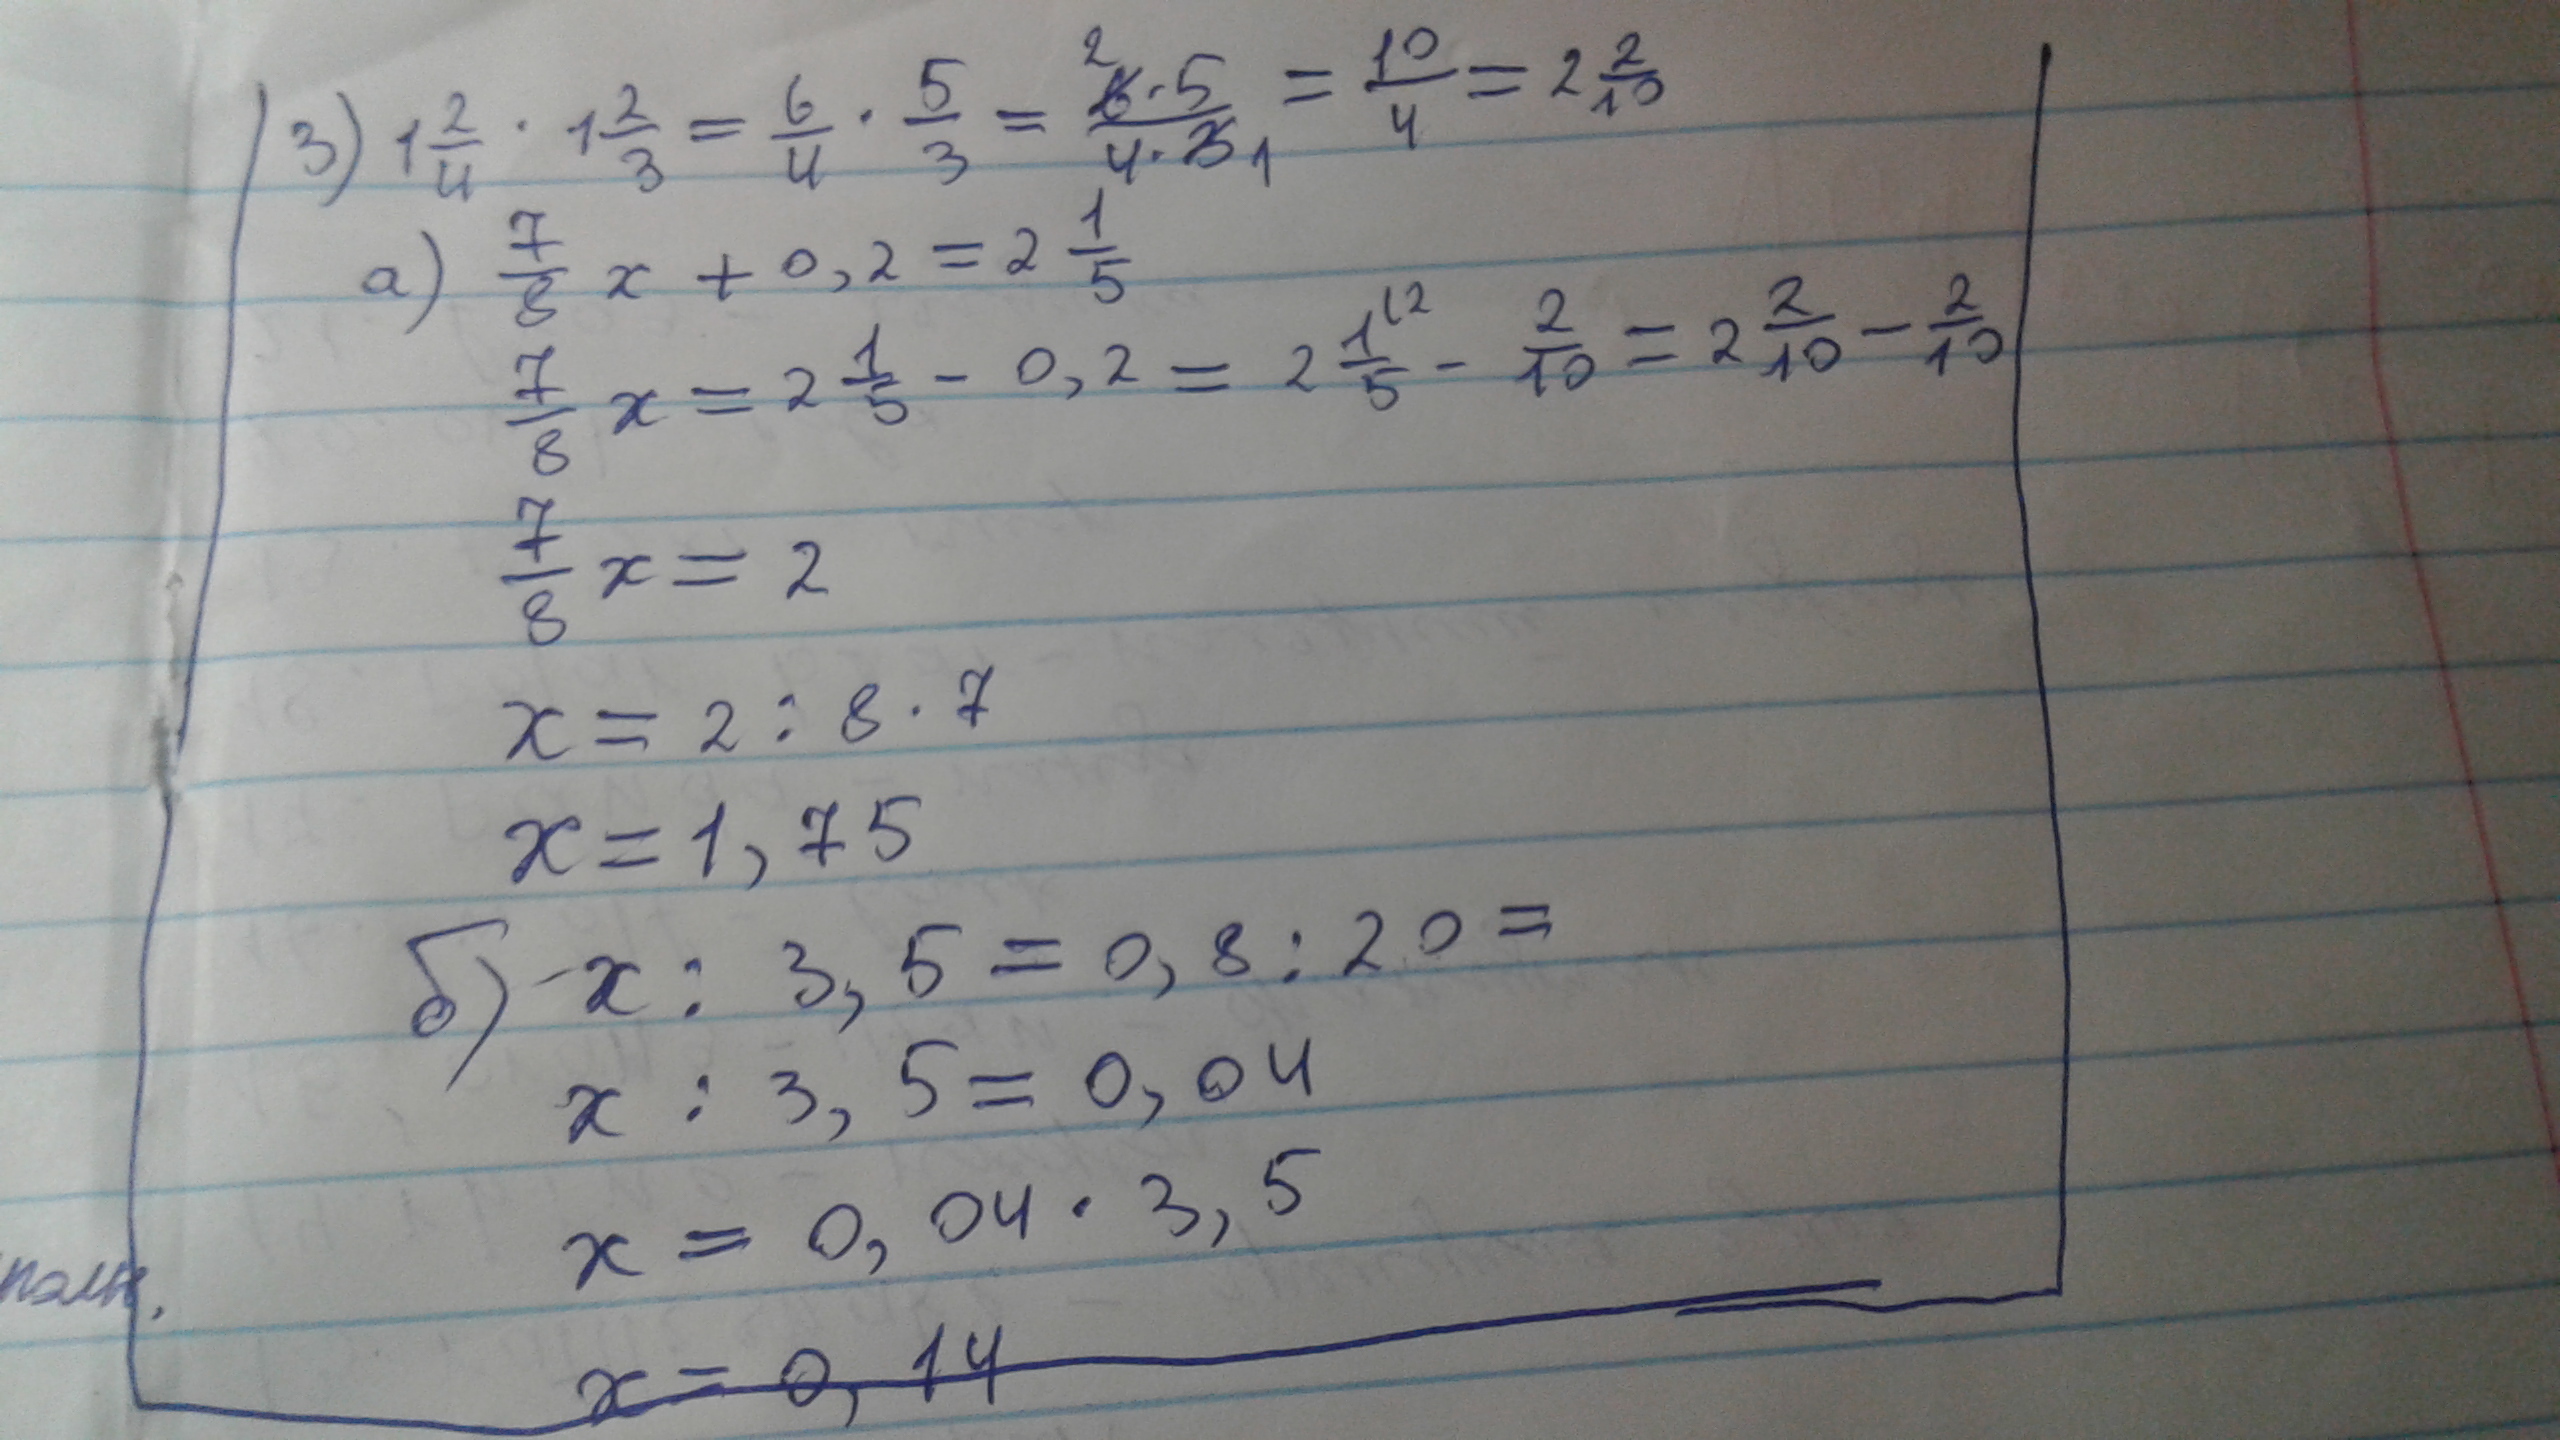 3) 1 2/4 · 1 2/3 = 6/4 · 5/3 = 6·5/4·3 2 1 = 10/4 = 2 2/10
а) 7/8 x + 0,2 = 2 1/5
7/8 x = 2 1/5 - 0,2 = 2 1/5 (2 - 2/10 = 2 2/10 - 2/10
7/8 x = 2
x = 2 : 8 · 7
x = 1,75
б) x : 3,5 = 0,8 : 20 =
x : 3,5 = 0,04
x = 0,04 · 3,5
x = 0,14